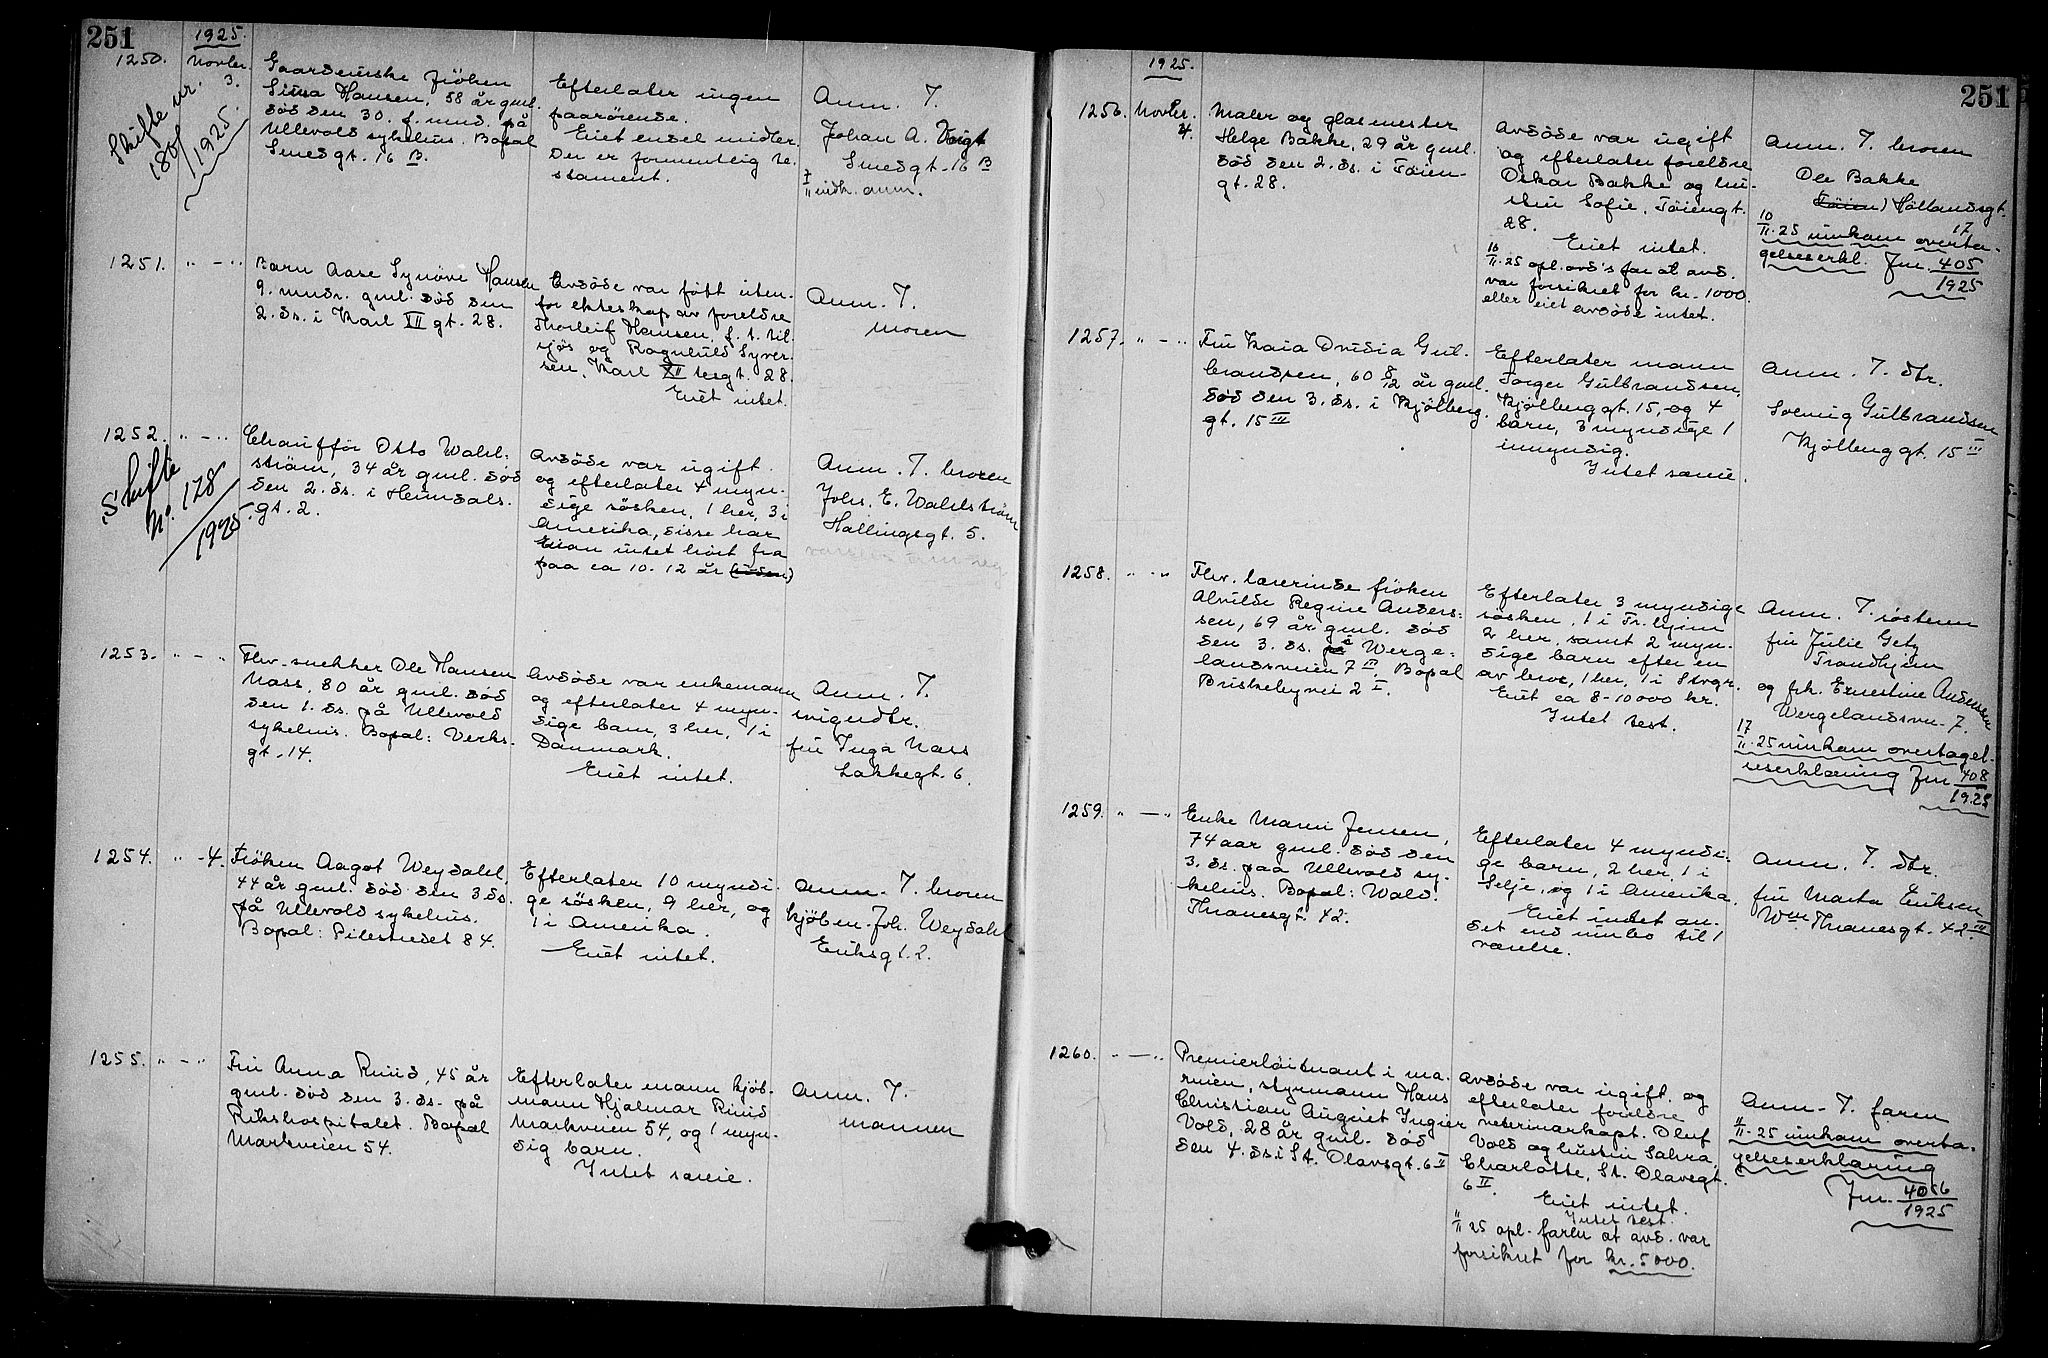 251
1925.
1250. Novbr. 3.
Skifte nr. 180/1925.
Gaardeierske fröken
Hansen, 58 år gml.
död den 30. f. mnd. på
Ullevold sykehus. Bopæl
Smedgt. 16 B.
Efterlater ingen
paarörende.
Eiet endel midler.
Der er formentlig te-
stament.
Anm. T.
Johan A. Voigt
Smedgt. 16 B
7/11 indk. anm.
1251. " - "
Barn Aase Synöve Hansen
9. mndr. gml. död den
2. ds. i Karl XII gt. 28.
Avdöde var födt uten-
for ekteskap av foreldre
Thorleif Hansen, f. t. til-
sjös og Ragnhild Syver-
sen, Karl XII tesgt. 28.
Eiet intet.
Anm. T.
moren
1252. " - "
Skifte No. 178/1925.
Chaufför Otto Wahl-
ström, 34 år gml. död
den 2. ds. i Heimdals-
gt. 2.
Avdöde var ugift
og efterlater 4 myn-
dige sösken, 1 her, 3 i
Amerika, disse har
man intet hört fra
paa ca 10-12 år (siden)
Anm. T. broren
Johs. E. Wahlström
Hallingsgt. 5.
1253. " - "
Fhv. snekker Ole Hansen
Nass, 80 år gml. död
den 1. ds. på Ullevold
sykehus. Bopæl: Verks-
gt. 14.
Avdöde var enkemann
og efterlater 4 myn-
dige barn, 3 her, 1 i
Danmark.
Eiet intet.
Anm. T.
svigerdtr.
fru Inga Nass
Lakkegt. 6.
1254. " - 4.
Fröken Aagot Weydahl,
44 år gml. död den 3 ds.
på Ullevold sykehus.
Bopæl: Pilestredet 84.
Efterlater 10 myndi-
ge sösken, 9 her, og
1 i Amerika.
Eiet intet.
Anm. T. broren
kjöbm. Joh. Weydahl
Eriksgt. 2.
1255. " - "
Fru Anna Ruud, 45 år
gml. död den 3. ds. på
Rikshospitalet. Bopæl
Markveien 54.
Efterlater mann kjöb-
mann Hjalmar Ruud
Markveien 54, og 1 myn-
dig barn.
Intet særeie.
Anm. T.
mannen
251
1925.
1256. Novbr. 4.
Maler og glasmester
Helge Bakke, 29 år gml.
död den 2. ds. i Töien-
gt. 28.
Avdöde var ugift
og efterlater foreldre
Oskar Bakke og hu-
stru Sofie, Töiengt.
28.
Eiet intet.
10/11-25 opl. avd's far at avd.
var forsikret for kr. 1000.
eller eiet avdöde intet.
Anm. T. broren
Ole Bakke
(Töien) Hollandsgt.
17
10/11-25 innkom overta-
gelseserkl. Jnr. 405/1925
1257. " - "
Fru Kaia Ovidia Gul-
brandsen, 60 8/12 år gml.
död den 3. ds. i Kjölberg-
gt. 15 III
Efterlater mann
Torger Gulbrandsen,
Kjölberggt. 15, og 4
barn, 3 myndige 1
umyndig.
Intet særeie.
Anm. T. dtr.
Solveig Gulbrandsen
Kjölberggt. 15 III
1258. " - "
Fhv. lærerinde fröken
Alvilde Regine Anders-
sen, 69 år gml. död
den 3. ds. i Werge-
landsveien 7 III Bopæl
Briskebyvei 2 I.
Efterlater 3 myndige
sösken, 1 i Tr.hjem
2 her, samt 2 myn-
dige barn efter en
av bror, 1 her, 1 i Stvgr.
Eiet ca 8-10000 kr.
Intet test.
Anm. T. sösteren
fru Julie Getz
Trondhjem
og frk. Ernestine Andersen
Wergelandsvn. 7.
17/11-25 innkom overtagel-
seserklæring Jnr 408/1925
1259. " - "
Enke Maren Jensen,
74 aar gml. död den
3. ds. paa Ullevold sy-
kehus. Bopæl: Wald.
Thranesgt. 42.
Efterlater 4 myndi-
ge barn, 2 her, 1 i
Selje, og 1 i Amerika.
Eiet intet an-
det end innbo til 1
værelse.
Anm. T. dtr.
fru Marta Eriksen
Wm. Thranesgt. 42 III
1260. " - "
Premierlöitnant i ma-
rinen, styrmann Hans
Christian August Ingier
Vold, 28 år gml. död
den 4. ds i St. Olavsgt. 6 II
Avdöde var ugift og
efterlater foreldre
veterinærkapt. Oluf
Vold og hustru
Charlotte, St. Olavsgt.
6 II.
Eiet intet.
Intet test.
11/11 25 opl. faren at avd. var
forsikret for kr. 5000.
Anm. T. faren
11/11-25 innkom overta-
gelseserklæring
Jnr. 4056/1925